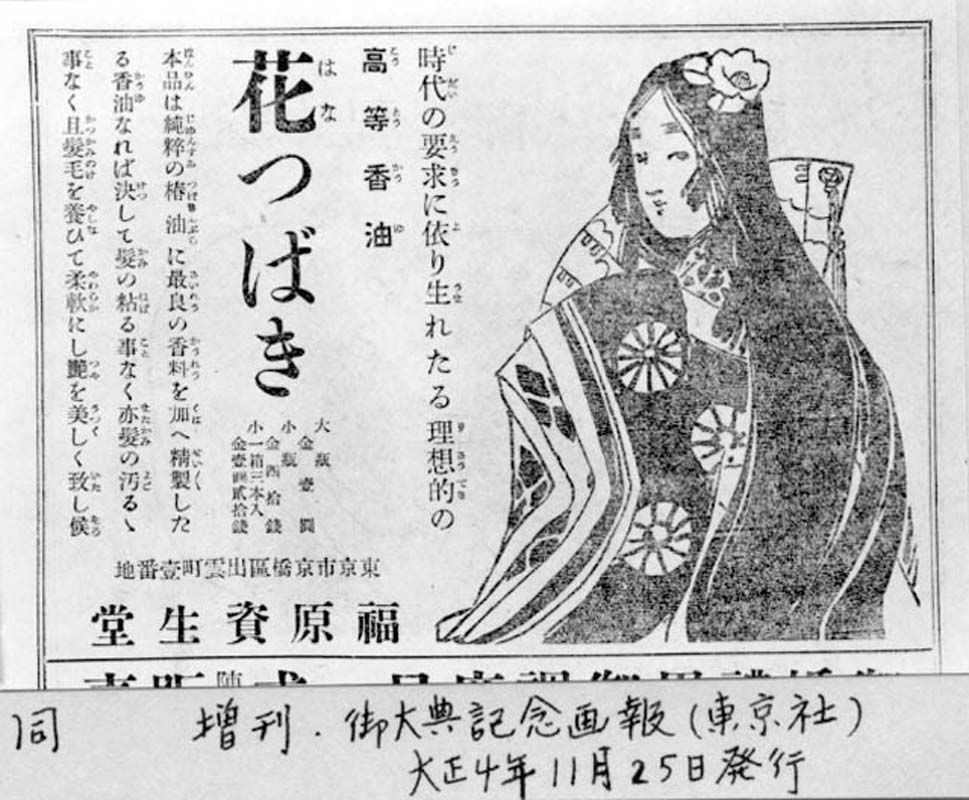 時代の要求に依り生れたる理想的の
高等香油
花つばき
大瓶 金壹圓
小瓶 金四拾錢
小一箱三本入
金壹圓貳拾錢
本品は純粋の椿油に最良の香料を加へ精製した
る香油なれば決して髮の粘る事なく亦髮の汚るゝ
事なく且髮毛を養ひて柔軟にし艶を美しく致し候
東京市京橋區出雲町壹番地
福原資生堂
同 増刊・御大典記念画報(東京社)
大正4年11月25日発行